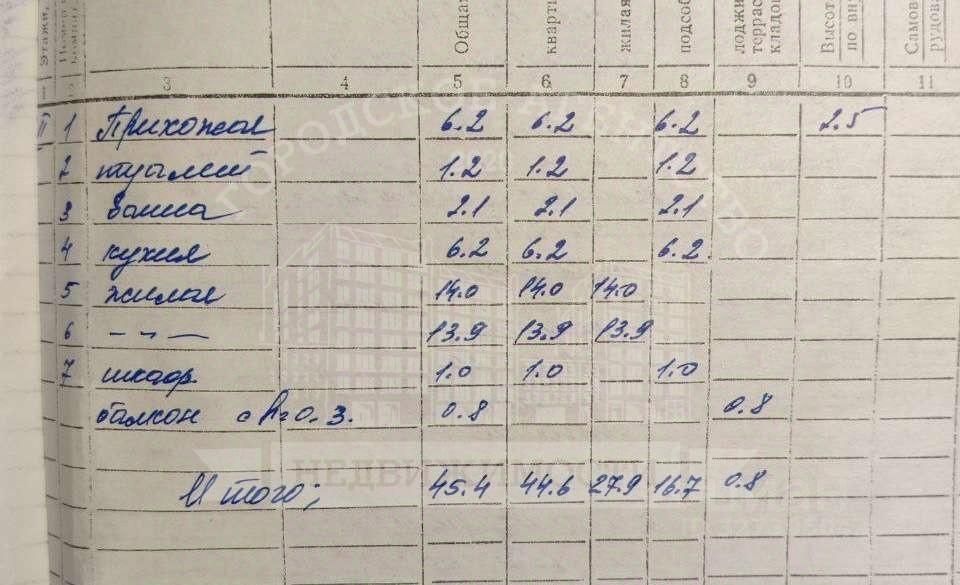 Этажи, Общая кварти жилая подсоб лоджи террас кладов Высот по вн Самов рудова
3 4 5 6 7 8 9 10 11
П 1 Прихожая 6.2 6.2 6.2 2.5
2 туалет 1.2 1.2 1.2
3 ванна 2.1 2.1 2.1
4 кухня 6.2 6.2 6.2
5 жилая 14.0 14.0 14.0
6 –"– 13.9 13.9 13.9
7 шкаф. 1.0 1.0 1.0
балкон с k=0.3. 0.8 0.8
Итого; 45.4 44.6 27.9 16.7 0.8
ГОРОДСКОЕ
НЕДВИЖИМО